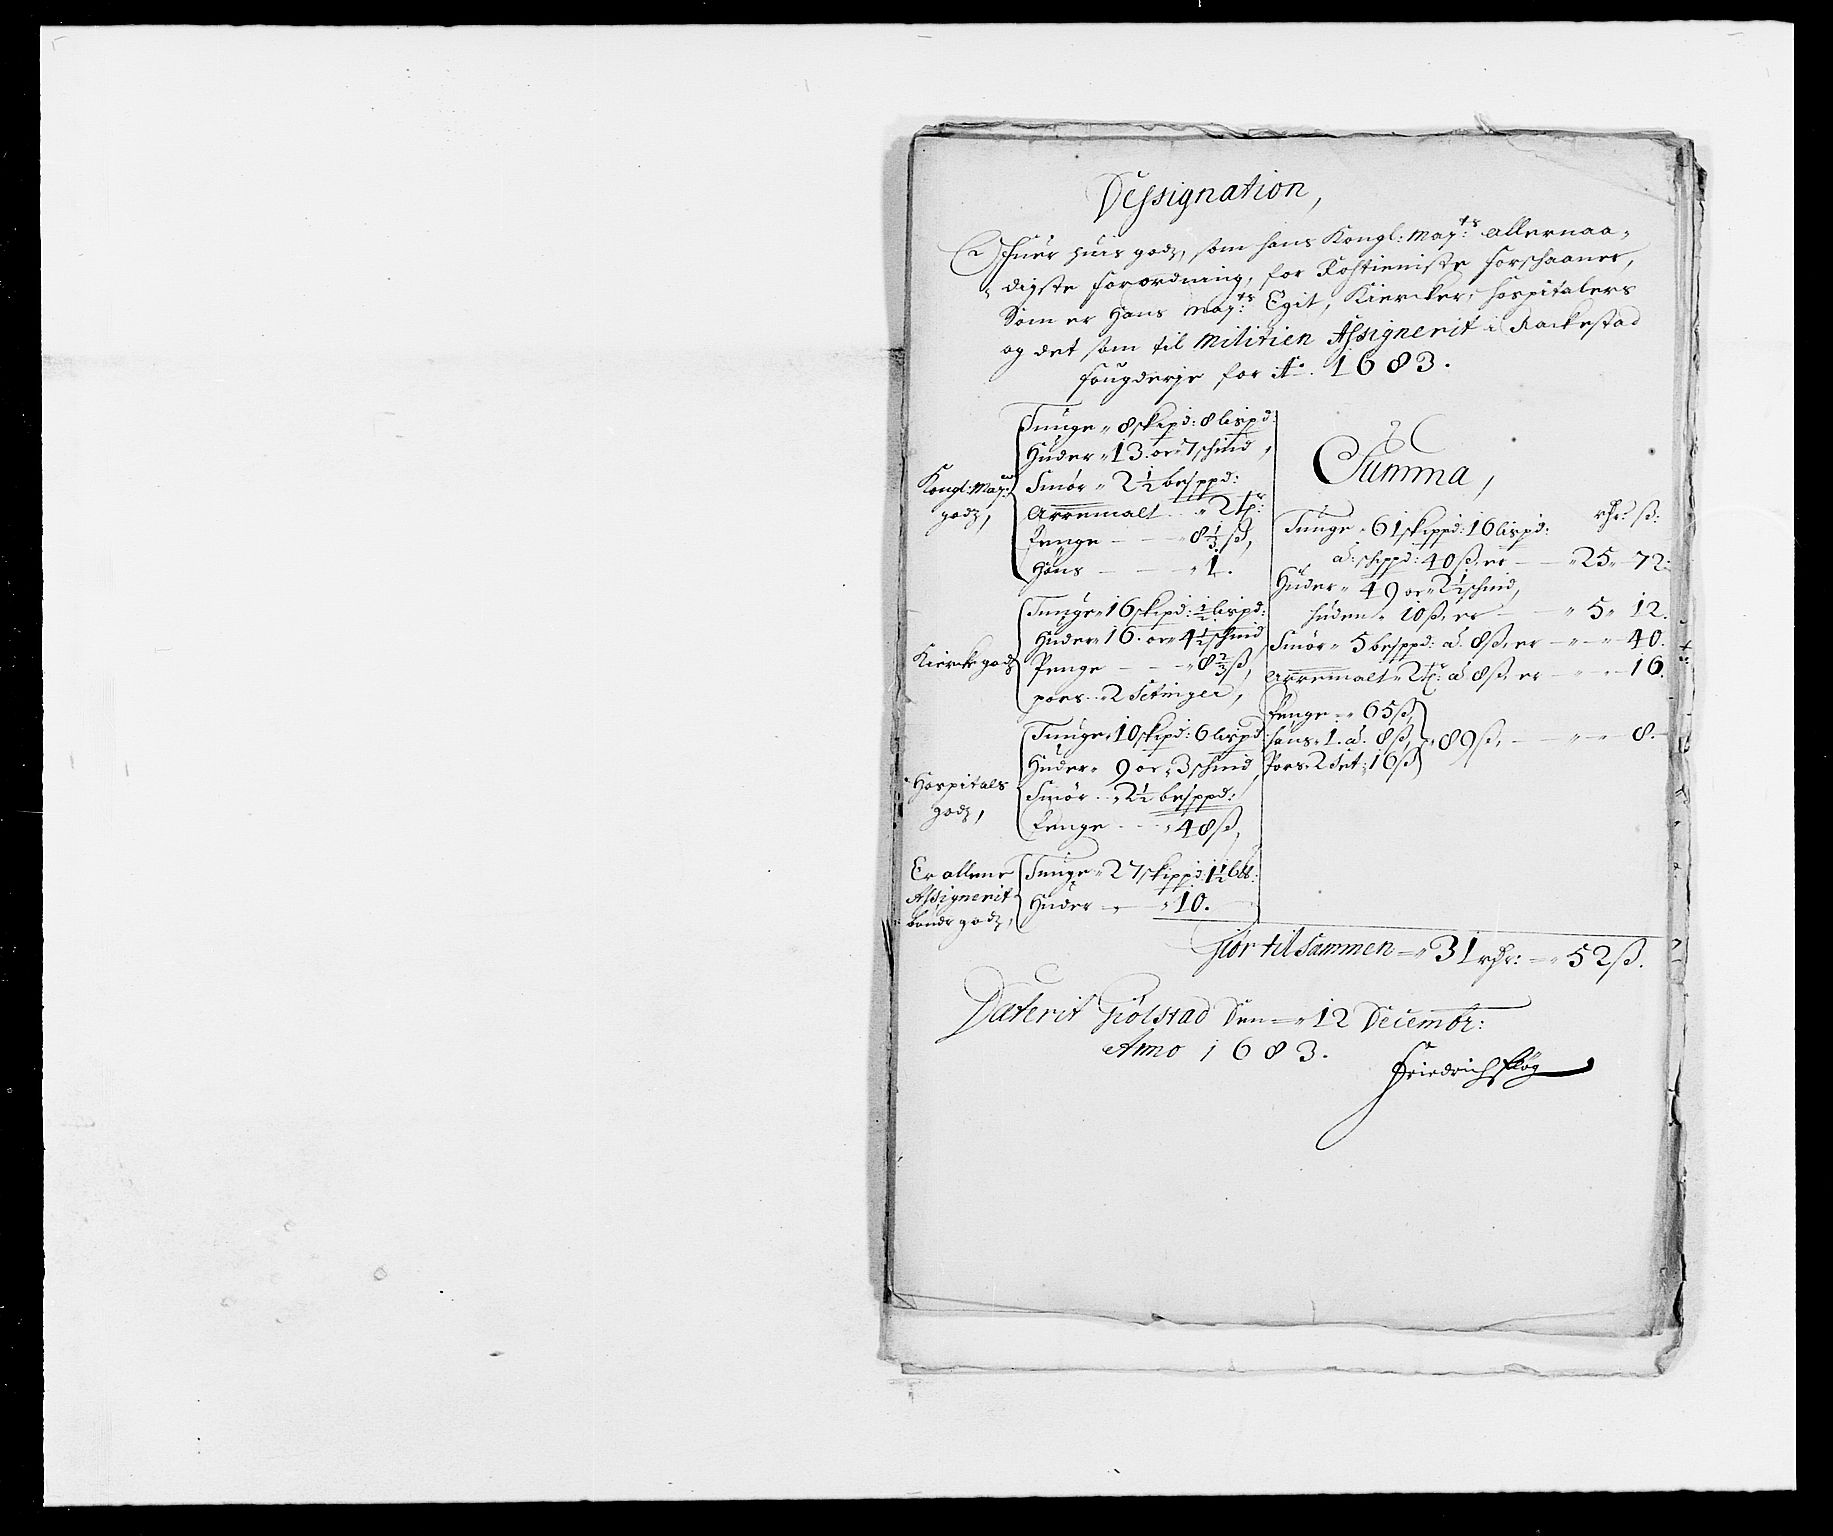 Dessignation,
Ofuer huis godz, som hans Kongl: May:ts allernaa-
digste forordning, for Rostieniste forschaaner,
Som er Hans May:ts Egit, Kiercker, Hospitalers
og det som til Militien Assignerit i Rackestad
fougderje for Ao. 1683.
Kongl: May:
godz,
Tunge 8 skipd: 8 lispd:
Huder 13. oc 7 schind,
Smør 2 1/2 besppd:
Arremalt 2 tr:
Penge 8 1/3 ß,
Høns 1.
Kiercke godz
Tunge 16 skipd: 1/2 lispd:
Huder 16. oc 4 1/2 schind
Penge 8 2/3 ß,
pors 2 Setinger,
Hospitals
godz,
Tunge 10 skipd: 6 lispd
Huder 9 oc 3 schind
Smør 2 1/2 besppd:
Penge 48 ß,
Er allene
Assignerit
bønder godz,
Tunge 27 skippd: 1 1/2 lb:
Huder 10.
Summa,
rdr: ß:
Tunge 61 skippd: 16 lispd:
a: schippd: 40 ß, er 25 72:
Huder 49 oc 2 1/2 schind,
huden 10 ß, er 5 12.
Smør 5 besppd: a 8 ß, er 40.
Arremalt 2 tr: a 8 ß, er 16.
Penge 65 ß,
høns 1. a. 8 ß, 89 ß, 8.
Pors 2 Set: 16 ß
Giør tilsammen 31 rdr: 52 ß.
Daterit Giølstad Den 12 Decembr:
Anno 1683.
Friedrich Pløg